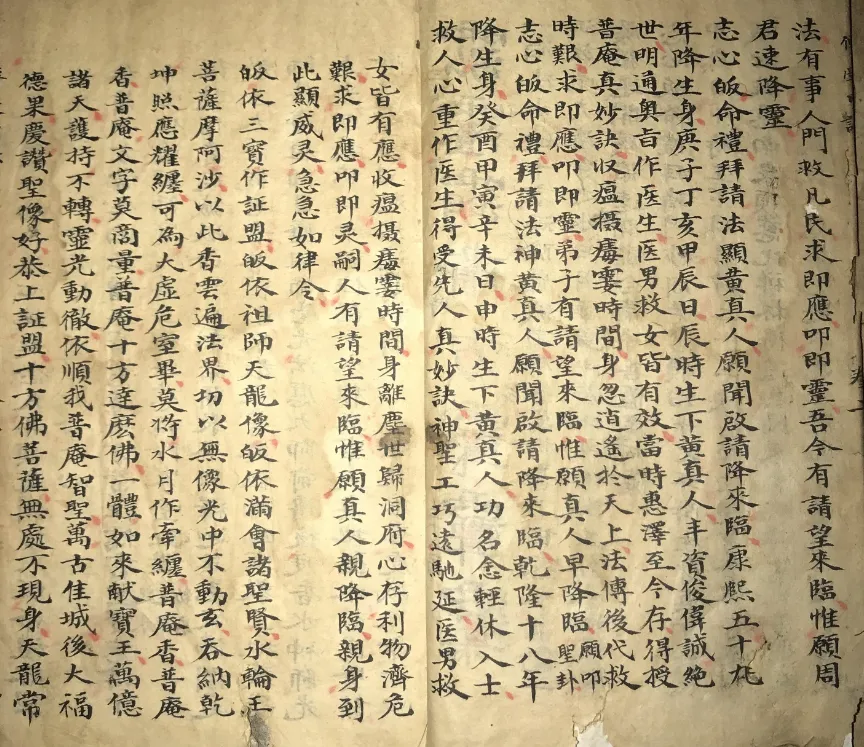 法有事人門救凡民求即應叩即靈吾今有請望來臨惟願周
君速降靈
志心皈命禮拜請法顯黄真人願聞啟請降來臨康熙五十九
年降生身庚子丁亥甲辰日辰時生下黄真人丰資俊偉誠絶
世明通奥旨作医生医男救女皆有效當時惠澤至今存得授
普庵真妙訣収瘟摄毒霎時間身忽逍遙於天上法傳後代救
時艱求即應叩即靈弟子有請望來臨惟願真人早降臨 願叩聖卦
志心皈命禮拜請法神黄真人願聞啟請降來臨乾隆十八年
降生身癸酉甲寅辛未日申時生下黄真人功名念輕休入士
救人心重作医生得受先人真妙訣神聖工巧遠馳延医男救
女皆有應收瘟摄毒霎時間身離塵世歸洞府心存利物濟危
艱求即應叩即灵嗣人有請望來臨惟願真人親降臨親身到
此顯威灵急急如律令
皈依三寶作証盟皈依祖師天龍像皈依滿會諸聖賢水輪王
菩薩摩阿沙以此香雲遍法界切以無像光中不動玄吞納乾
坤照應耀纏可為大虚危室畢莫将水月作牽纏普庵香普庵
香普庵文字莫商量普庵十方達麽佛一體如來献寶王萬億
諸天護持不轉靈光動徹依順我普庵智聖萬古佳城後大福
德果慶讚聖像好恭上証盟十方佛菩薩無處不現身天龍常